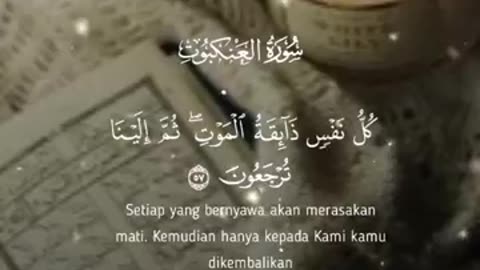 سُورَةُ العَنكَبُوتِ
كُلُّ نَفْسٍ ذَآئِقَةُ ٱلْمَوْتِ ۖ ثُمَّ إِلَيْنَا
تُرْجَعُونَ ٥٧
Setiap yang bernyawa akan merasakan
mati. Kemudian hanya kepada Kami kamu
dikembalikan